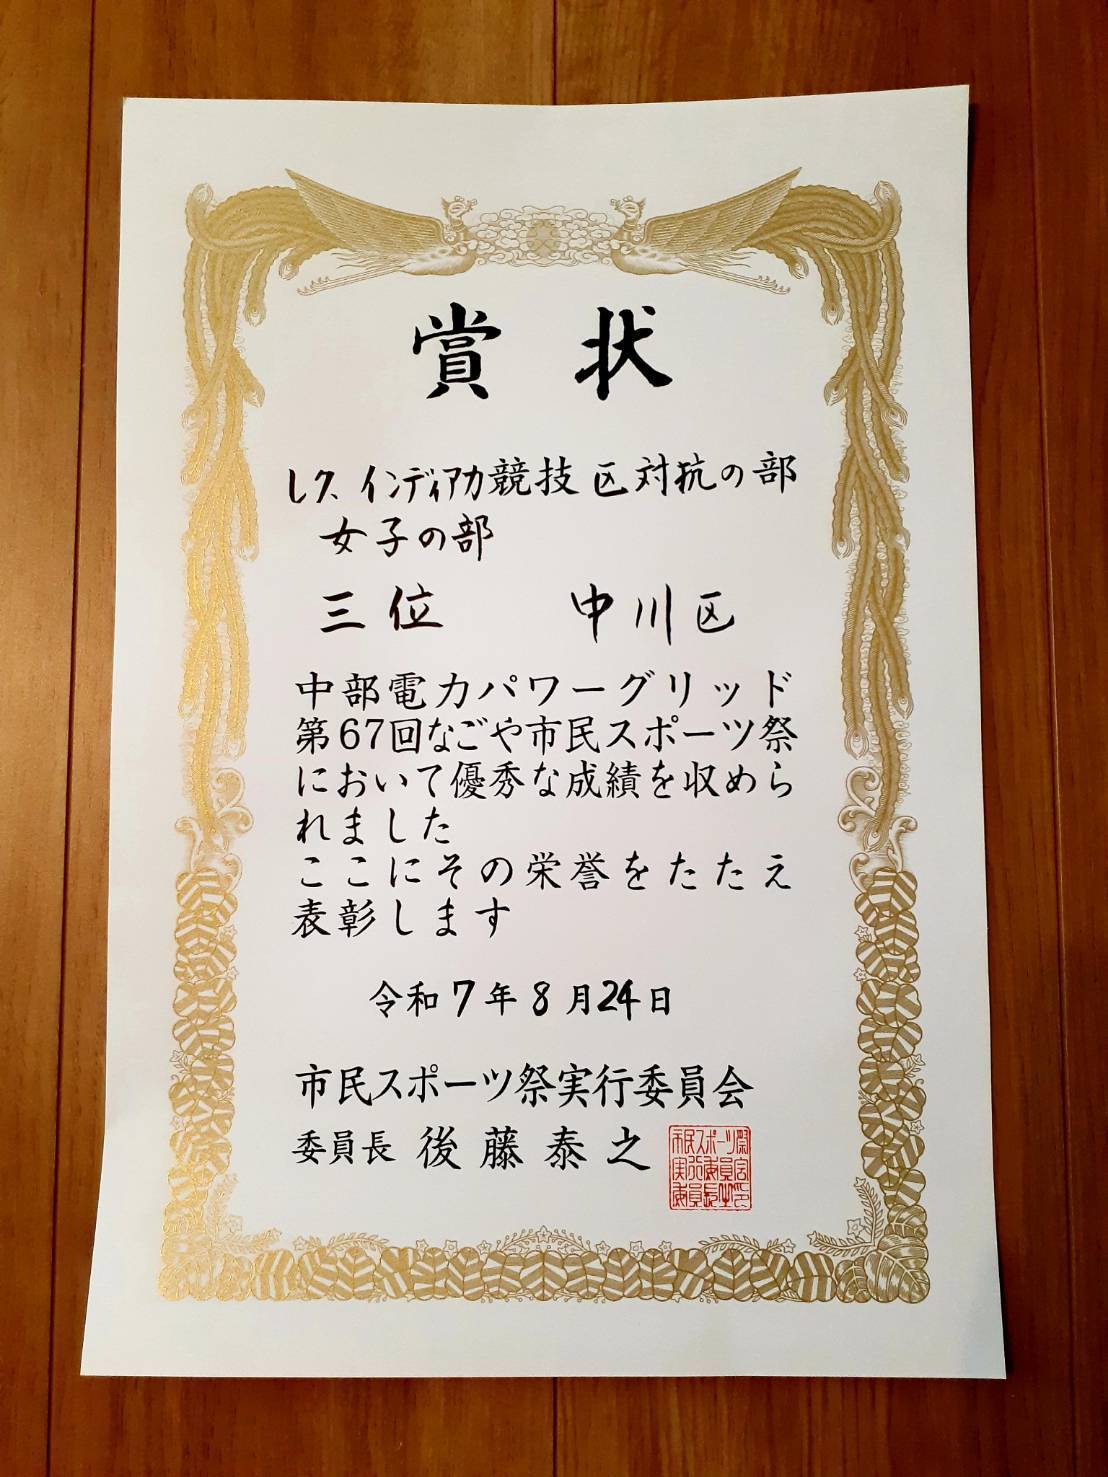 賞状
レク、インディアカ競技 区対抗の部
女子の部
三位 中川区
中部電力パワーグリッド
第67回なごや市民スポーツ祭
において優秀な成績を収めら
れました
ここにその栄誉をたたえ
表彰します
令和7年8月24日
市民スポーツ祭実行委員会
委員長 後藤泰之
市民スポーツ祭
実行委員会
委員長之印